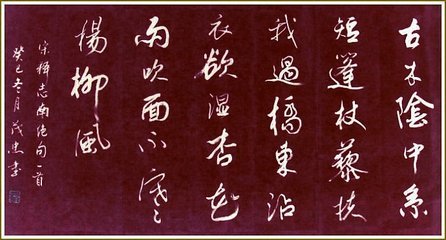 古木陰中系
短篷杖藜扶
我過橋東沾
衣欲湿杏花
雨吹面不寒
楊柳風
宋釋志南絕句一首
癸巳月書